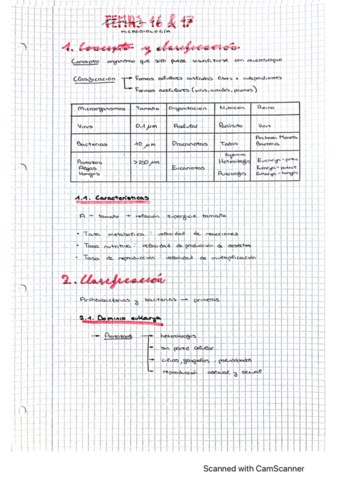 TEMAS 16 & 17
MICROBIOLOGÍA
1. Concepto y clasificación
Concepto: organismo que sólo puede visualizarse con microscopio
Clasificación → Formas celulares aisladas libres o independientes
→ Formas acelulares (virus, viroides, priones)
Microorganismos Tamaño Organización Nutrición Reino
Virus 0.1 μm Acelular Parásito
Bacterias 10 μm Procariotas Todas Bacteria
Protozoos Algas Hongos >250 μm Eucariotas Heterótrofa Autótrofa
1.1. Características
tamaño → relación superficie tamaño
• Tasa metabólica: velocidad de reacciones
• Tasa nutritiva: velocidad de producción de desechos
• Tasa de reproducción velocidad de multiplicación
2. Clasificación
Archeobacterias y bacterias →
2.1. Dominio eukarya
→ Protozoos → heterótrofos
→ sin pared celular
→ cilios, flagelos, pseudópodos
→ reproducción asexual y sexual
Scanned with CamScanner